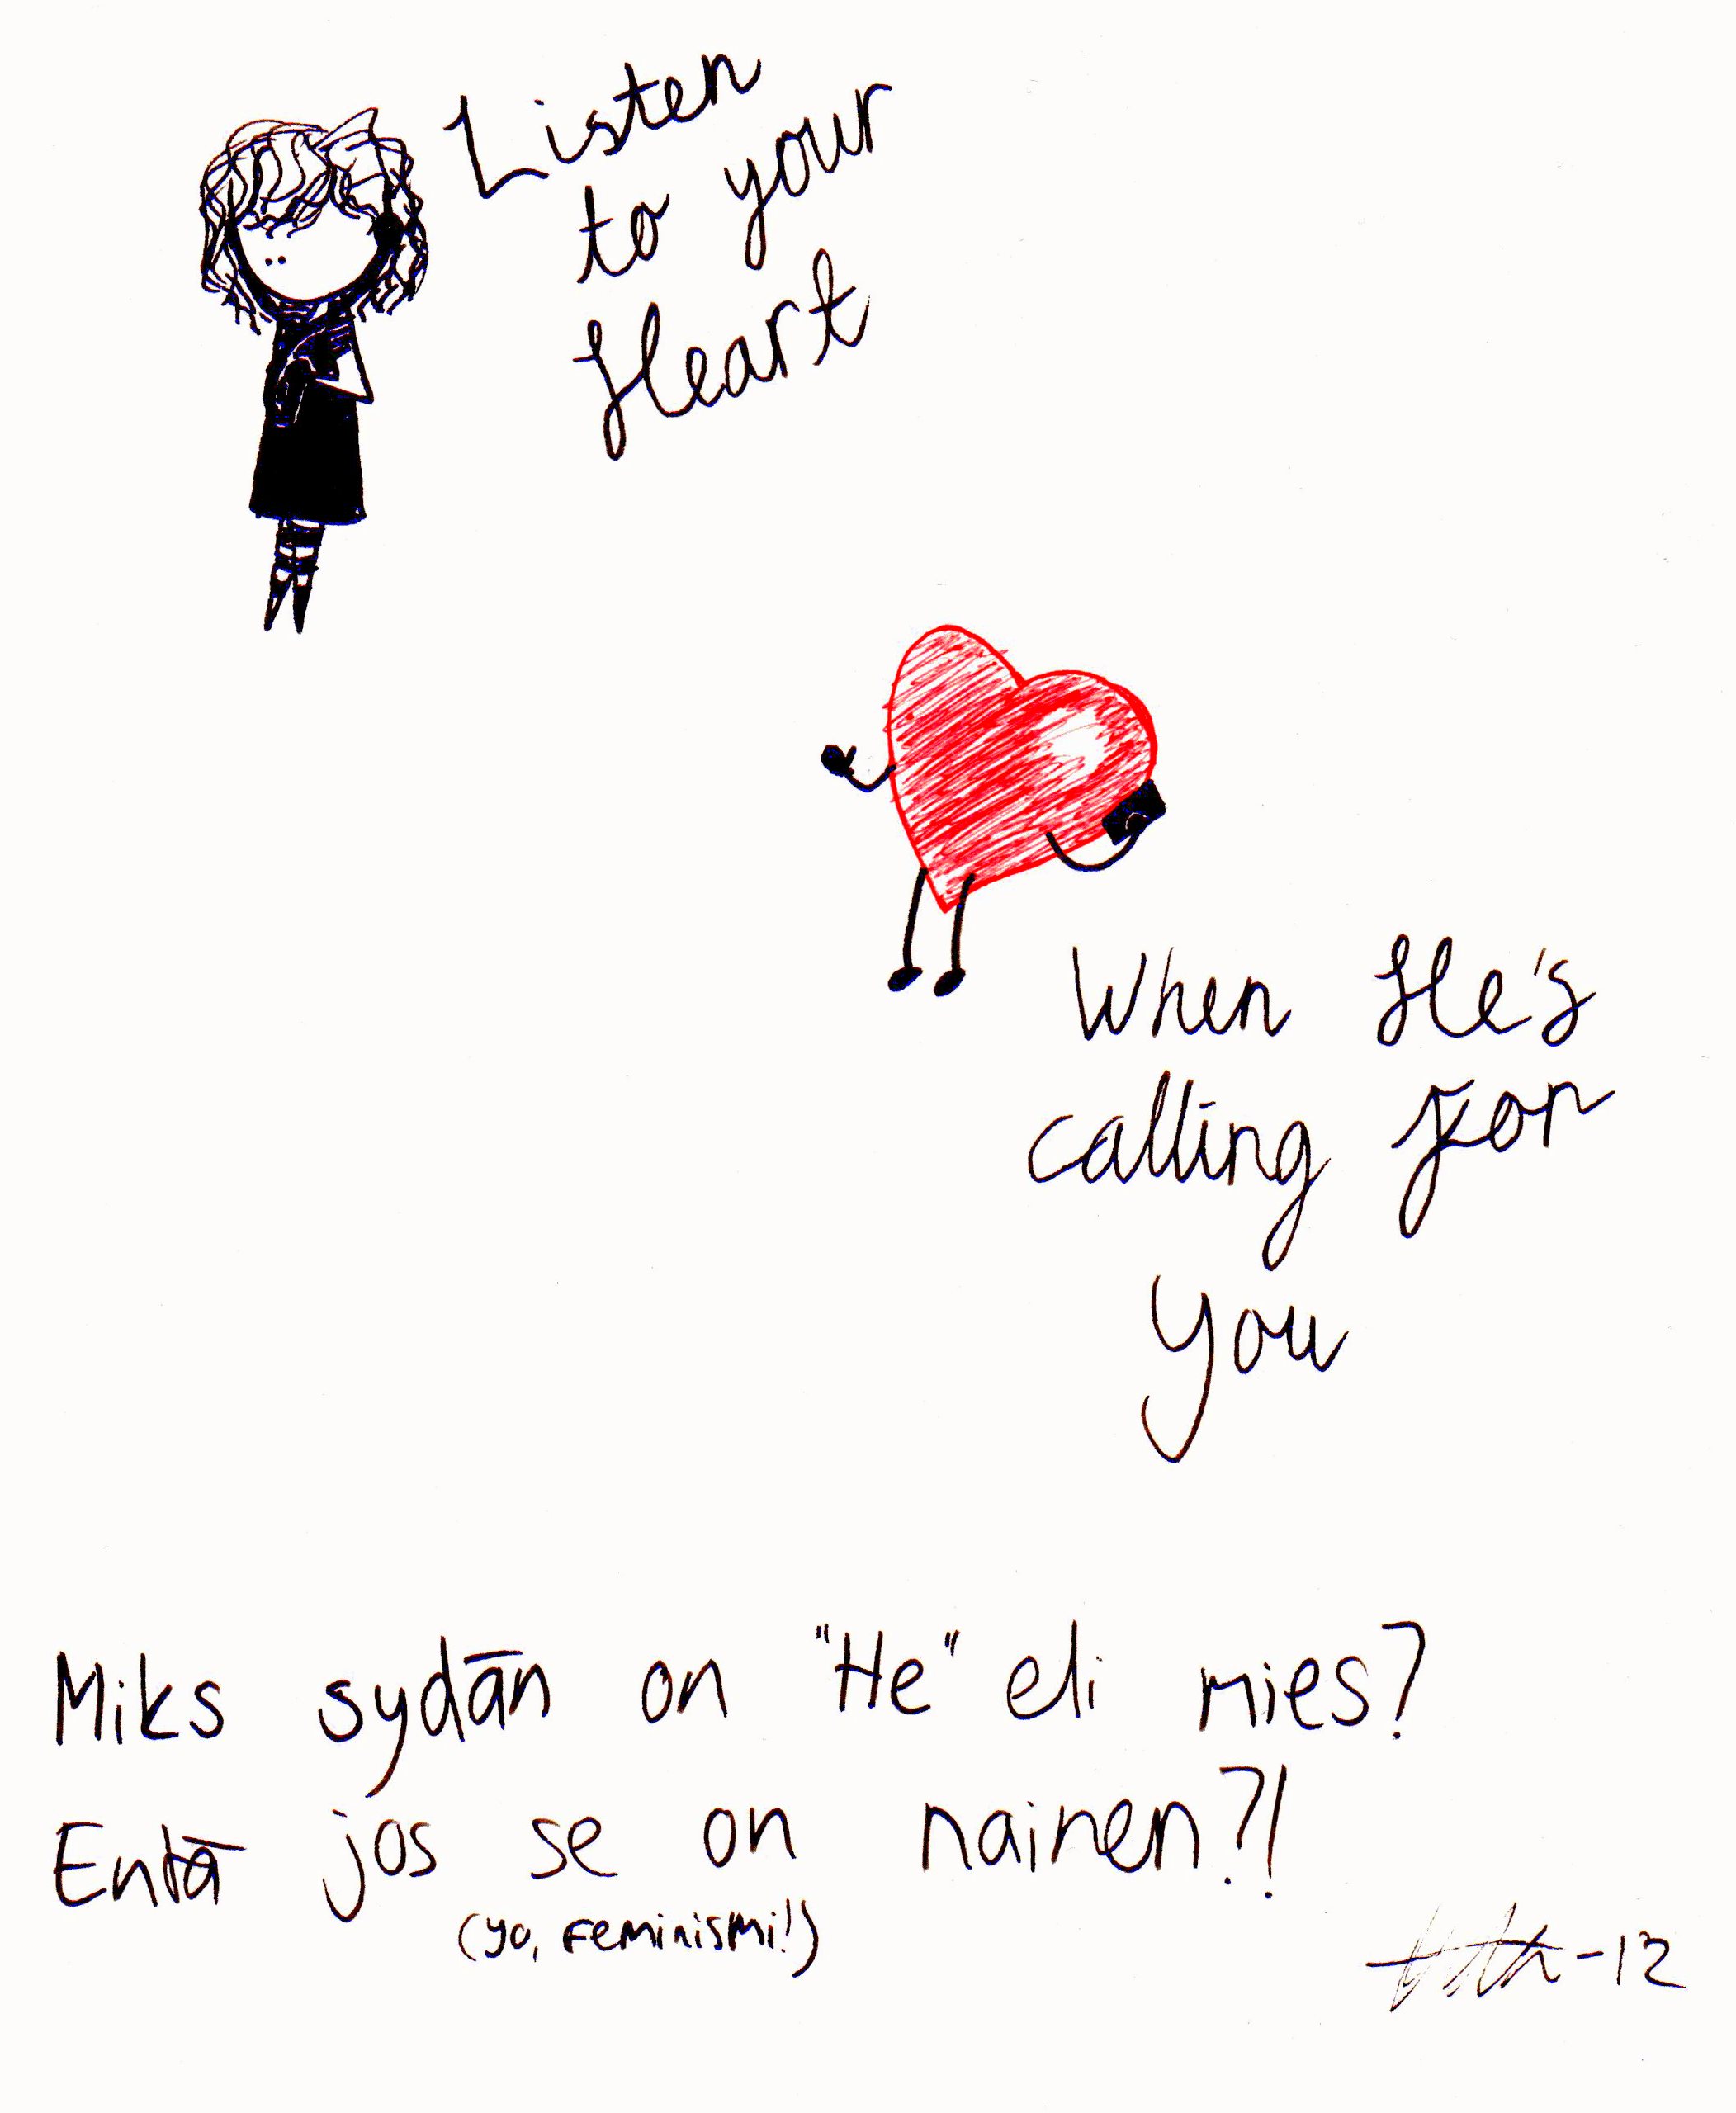 Listen
to your
Heart
When He's
calling For
You
Miks sydän on "He" eli mies?
Entä jos se on nainen?!
(yo, Feminismi!)
-12